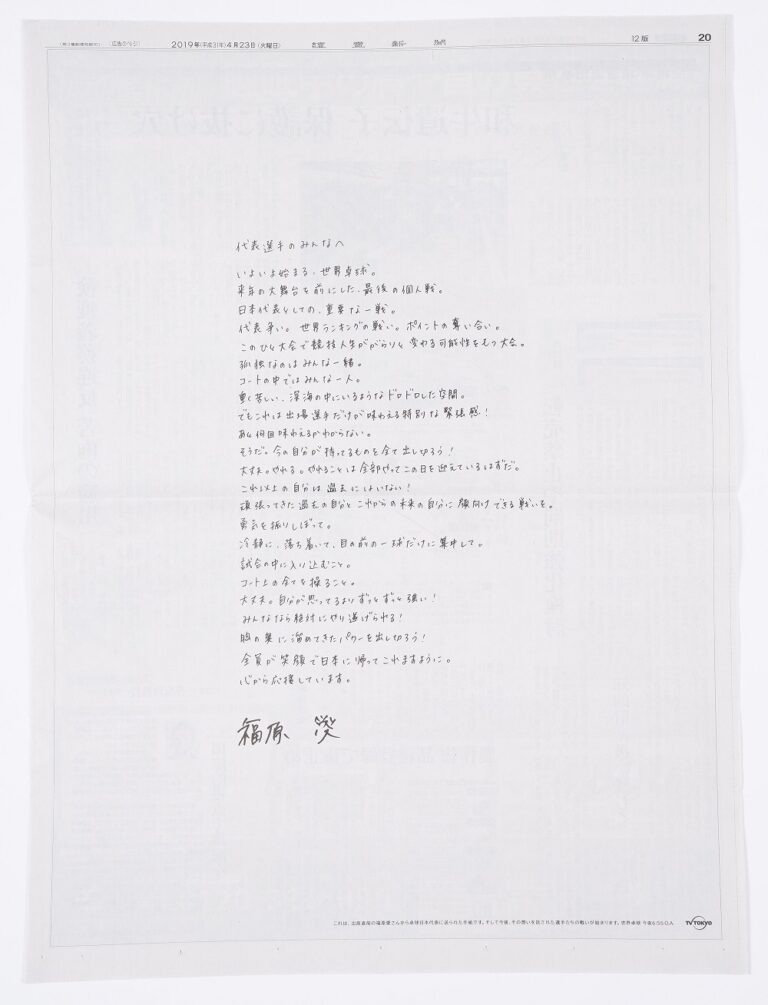 (広告のページ)
2019年(平成31年)4月23日(火曜日)
讀賣新聞
12版
20
代表選手のみんなへ
いよいよ始まる、世界卓球。
来年の大舞台を前にした、最後の個人戦。
日本代表としての、重要な一戦。
代表争い。世界ランキングの戦い。ポイントの奪い合い。
このひと大会で競技人生ががらりと変わる可能性をもつ大会。
孤独なのはみんな一緒。
コートの中ではみんな一人。
重く苦しい、深海の中にいるようなドロドロした空間。
でもこれは出場選手だけが味わえる特別な緊張感！
あと何回味わえるかわからない。
そうだ。今の自分が持ってるものを全て出し切ろう！
大丈夫。やれる。やれることは全部やってこの日を迎えているはずだ。
これ以上の自分は過去にはいない！
頑張ってきた過去の自分とこれからの未来の自分に顔向けできる戦いを。
勇気を振りしぼって。
冷静に、落ち着いて、目の前の一球だけに集中して。
試合の中に入り込むこと。
コート上の全てを操ること。
大丈夫。自分が思ってるよりずっとずっと強い！
みんななら絶対にやり遂げられる！
胸の奥に溜めてきたパワーを出し切ろう！
全員が笑顔で日本に帰ってこれますように。
心から応援しています。
福原 愛
これは、出産直前の福原愛さんから卓球日本代表に送られた手紙です。そして今夜、その想いを託された選手たちの戦いが始まります。世界卓球 今夜6:55 O.A.
TV TOKYO